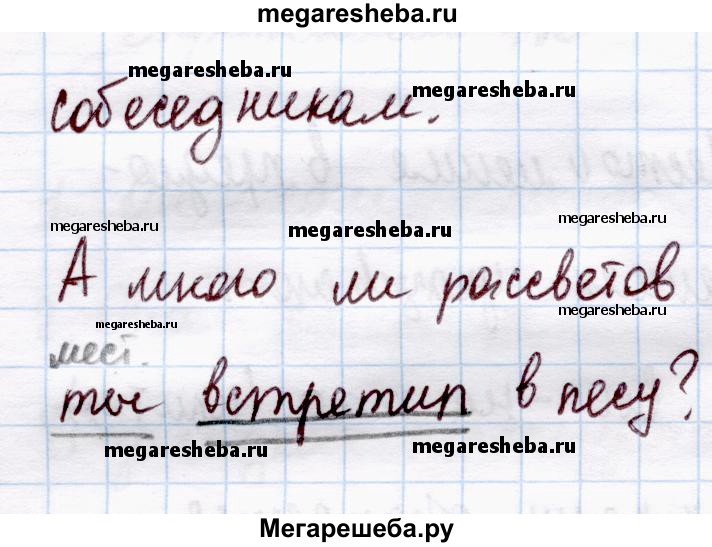 megaresheba.ru
megaresheba.ru
megaresheba.ru
собеседникам.
megaresheba.ru
megaresheba.ru
megaresheba.ru
А много ли рассветов
megaresheba.ru
megaresheba.ru
мест.
ты встретил в лесу?
megaresheba.ru
megaresheba.ru
Мегарешеба.ру